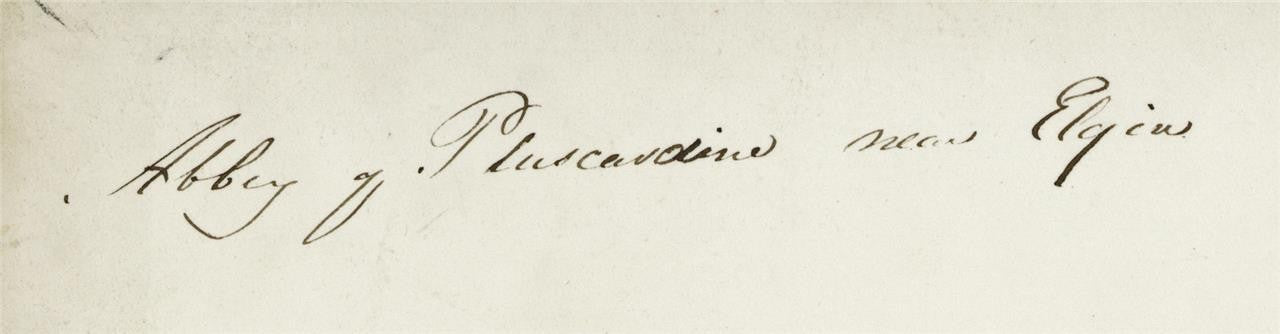 Abbey of Pluscardine near Elgin